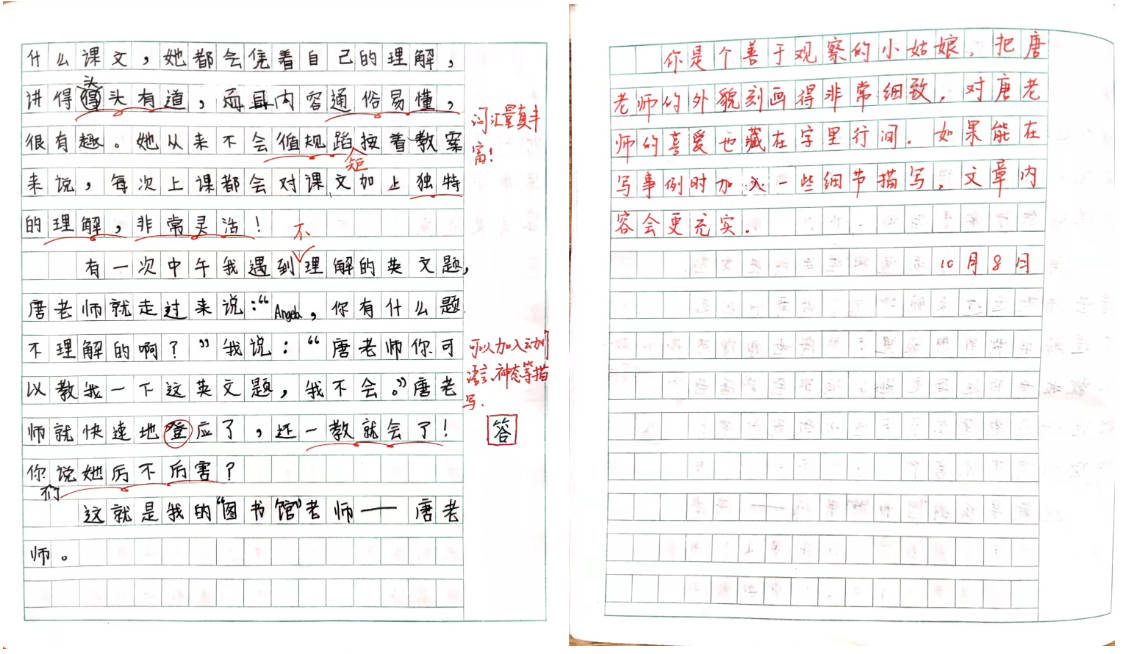 什么课文，她都会凭着自己的理解，
头
讲得头头有道，而且内容通俗易懂，
很有趣。她从来不会循规蹈按着教案
矩
来说，每次上课都会对课文加上独特
的理解，非常灵活！
不
有一次中午我遇到理解的英文题，
唐老师就走过来说：“Angela，你有什么题
不理解的啊？”我说：“唐老师你可
以教我一下这英文题，我不会。”唐老
师就快速地登应了，还一教就会了！
你说她厉不厉害？
们
这就是我的“图书馆”老师——唐老
师。
词汇量真丰
富！
可以加入动作
语言、神态等描
写．
答
你是个善于观察的小姑娘，把唐
老师的外貌刻画得非常细致，对唐老
师的喜爱也藏在字里行间．如果能在
写事例时加入一些细节描写，文章内
容会更充实．
10月8日